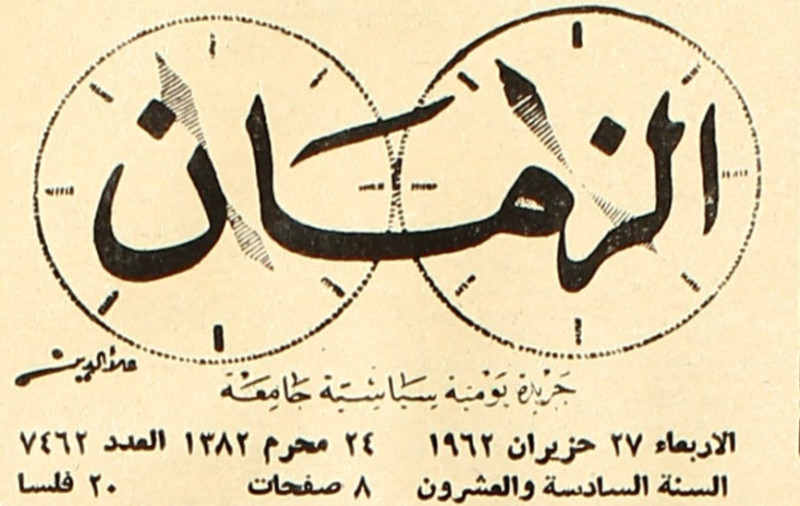 الزمان
علاء الدين
جريدة يومية سياسية جامعة
الاربعاء ٢٧ حزيران ١٩٦٢ ٢٤ محرم ١٣٨٢ العدد ٧٤٦٢
السنة السادسة والعشرون ٨ صفحات ٢٠ فلسا